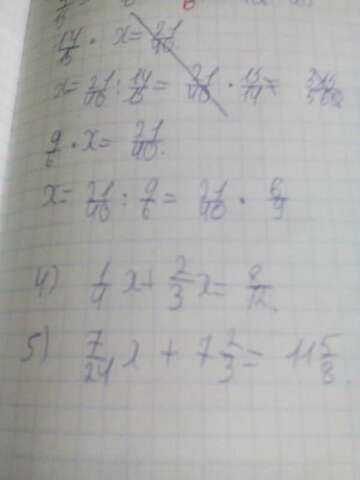 14/15 · x = 21/40
x = 21/40 : 14/15 = 21/40 · 15/14 = 315/560
9/6 · x = 21/40.
x = 21/40 : 9/6 = 21/40 · 6/9
4) 1/4 x + 2/3 x = 8/12.
5) 7/24 x + 7 2/3 = 11 5/8